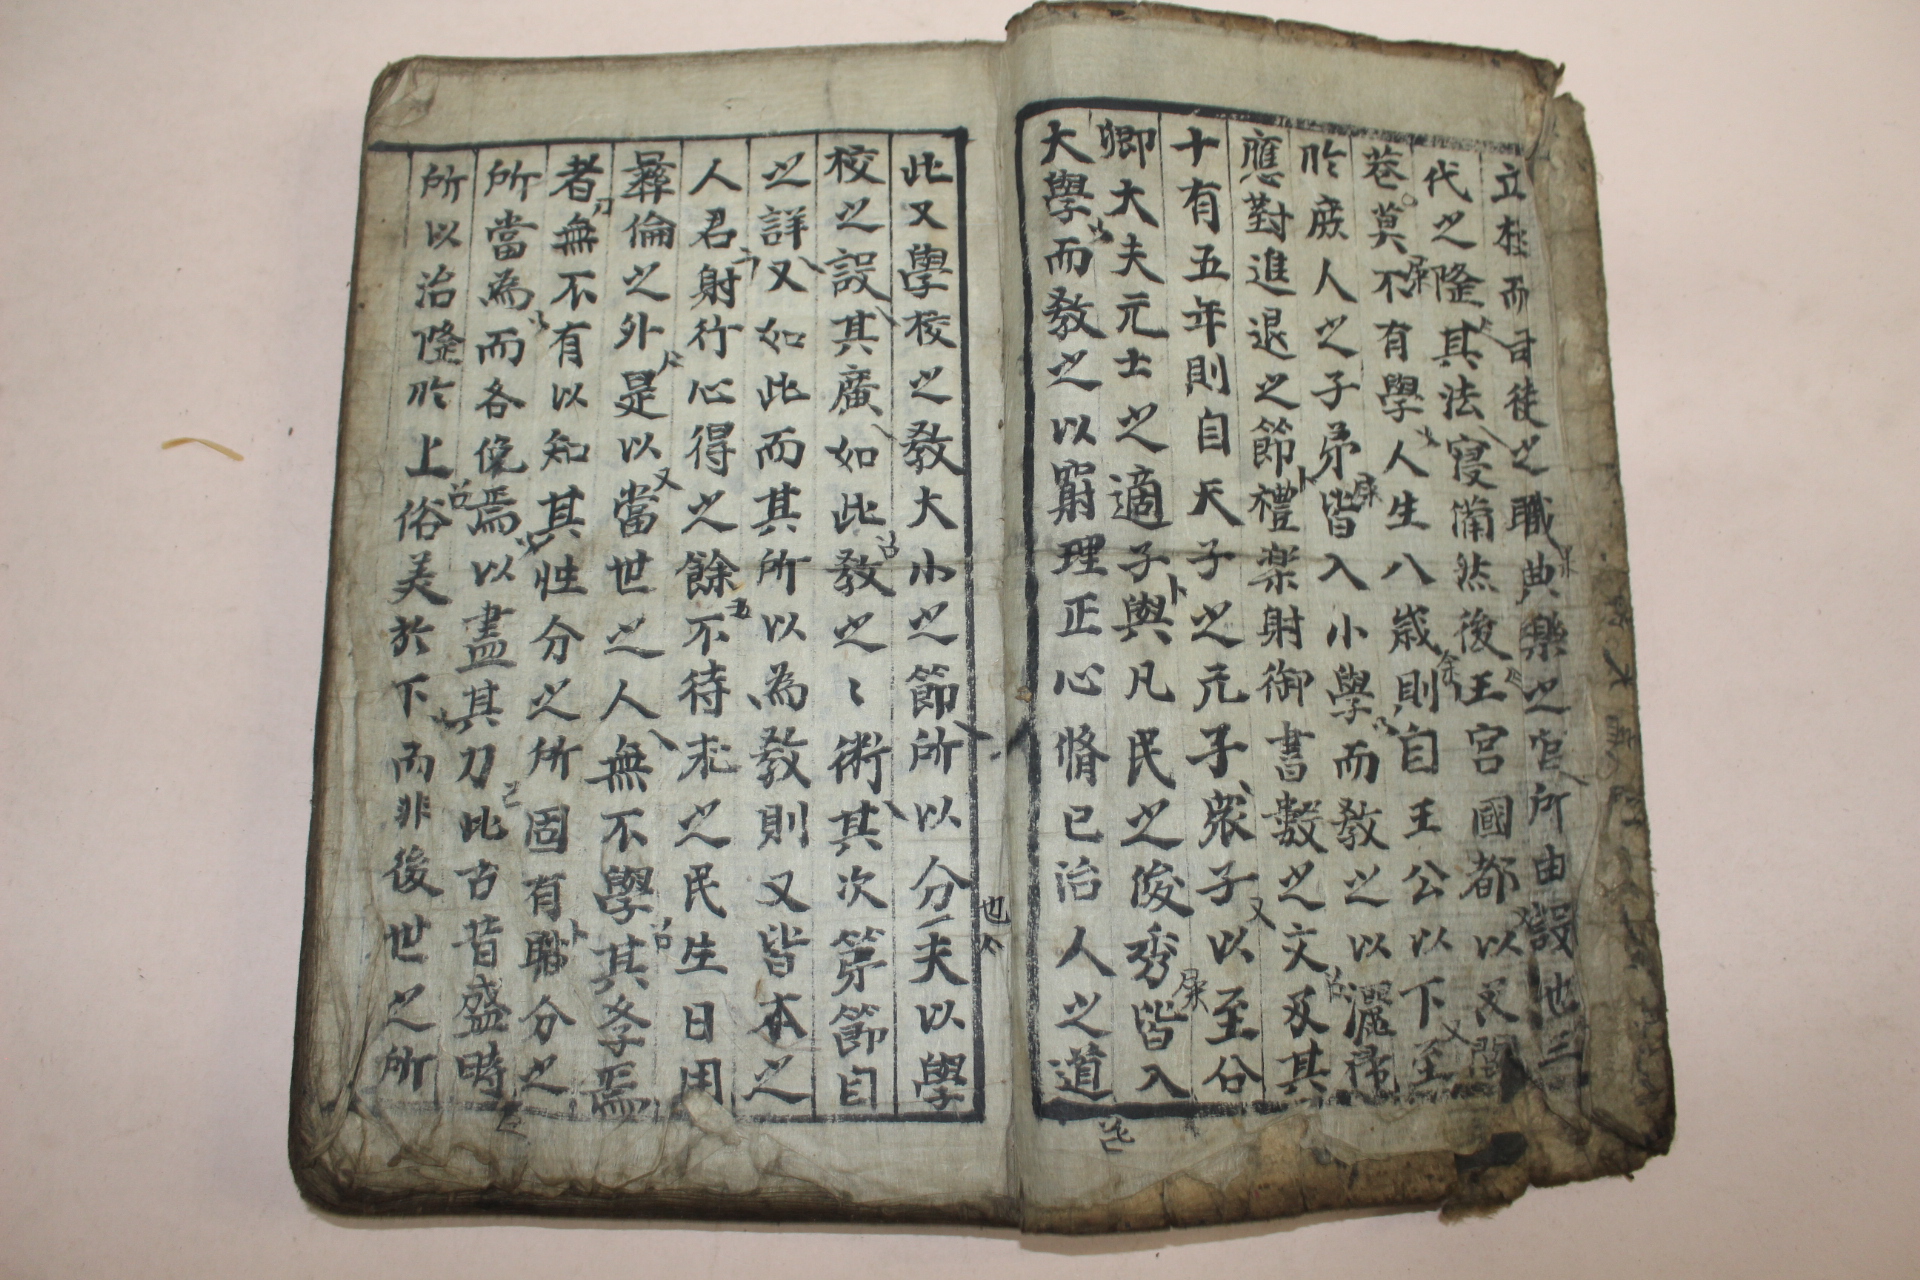 立極而司徒之職典樂之官所由設也三
代之隆其法寖備然後王宮國都以及閭
巷莫不有學人生八歲則自王公以下至
於庶人之子弟皆入小學而教之以灑掃
應對進退之節禮楽射御書數之文及其
十有五年則自天子之元子衆子以至公
卿大夫元士之適子與凡民之俊秀皆入
大學而教之以窮理正心脩已治人之道
此又學校之教大小之節所以分夫以學
也
校之設其廣如此教之〻術其次第節目
之詳又如此而其所以為教則又皆本之
人君躬行心得之餘不待求之民生日用
彛倫之外是以當世之人無不學其學焉
者無不有以知其性分之所固有職分之
所當為而各俛焉以盡其力此古昔盛時
所以治隆於上俗美於下而非後世之所